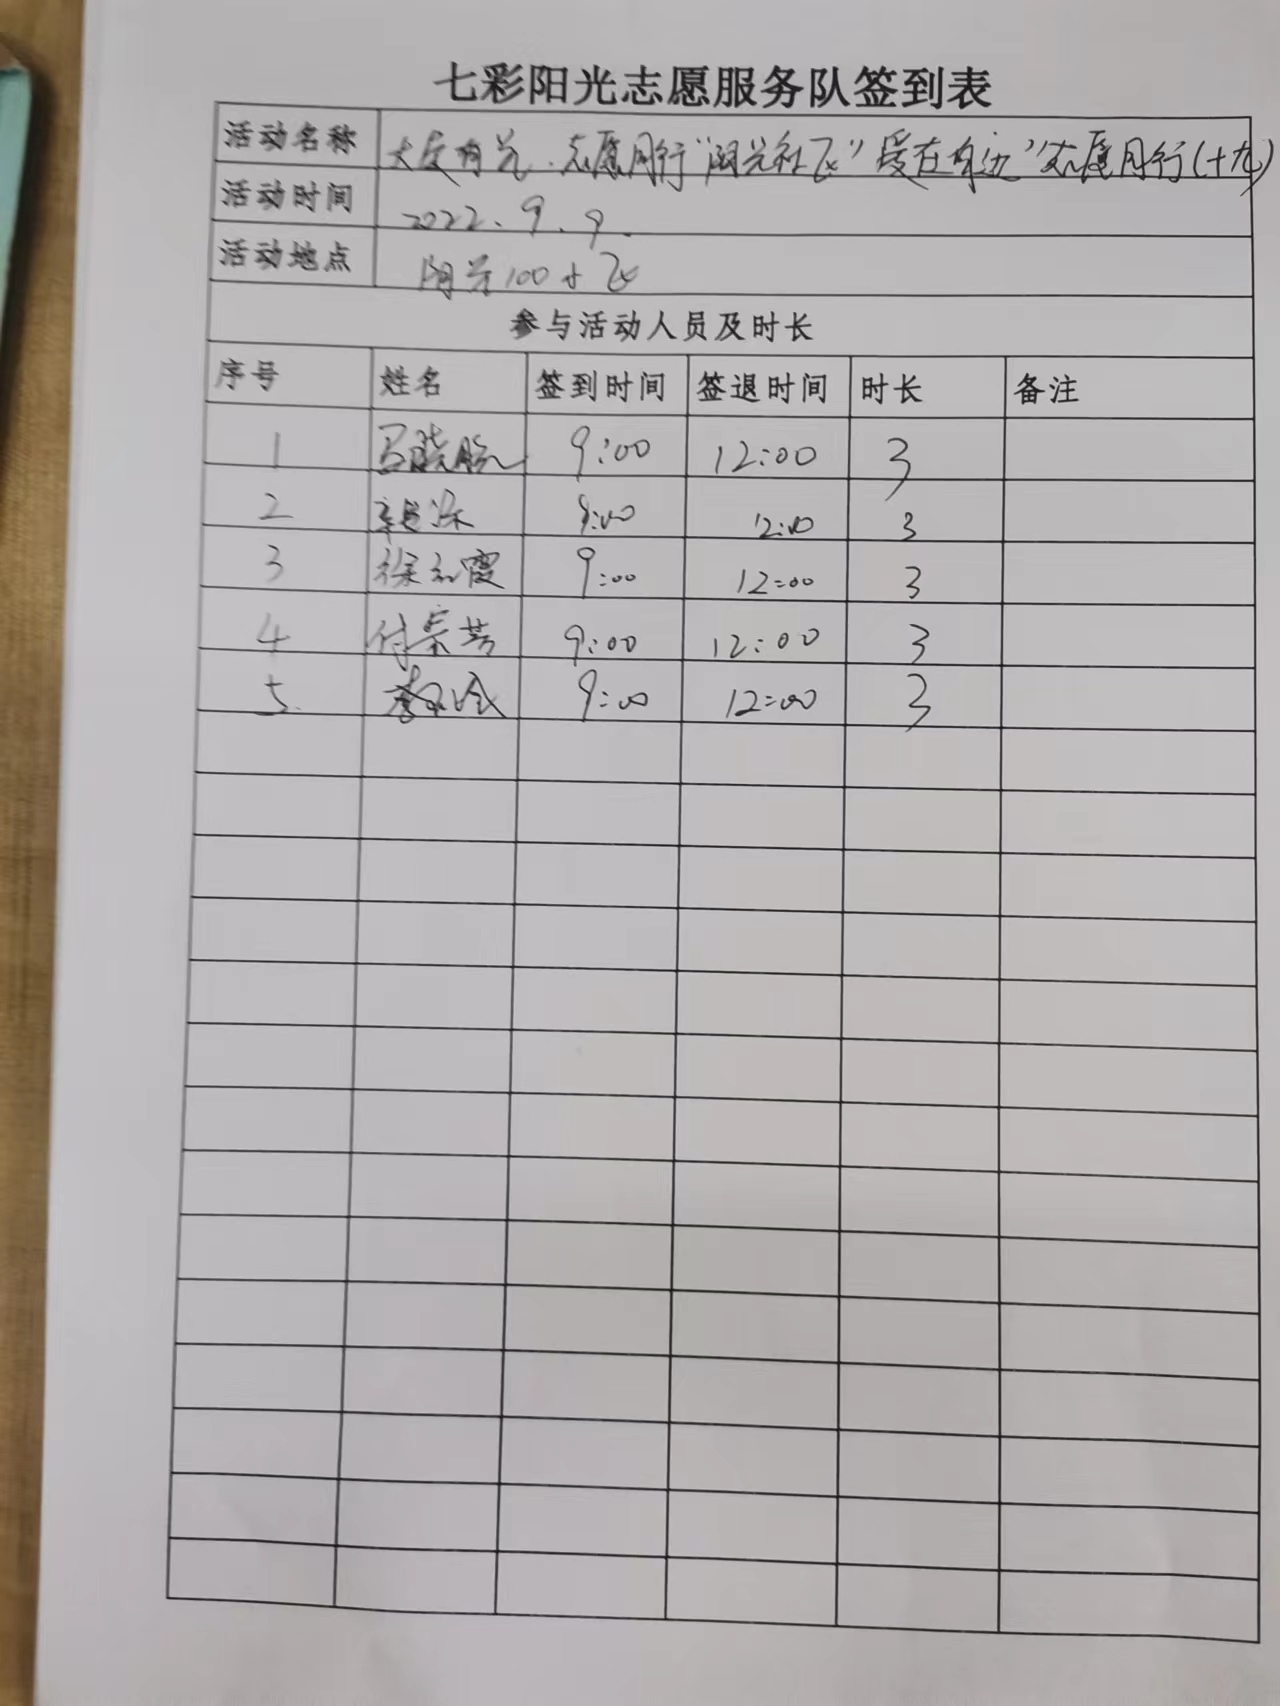 七彩阳光志愿服务队签到表
活动名称 大爱有光、志愿同行"阳光社区"爱在身边"志愿同行(十九)
活动时间 2022.9.9.
活动地点 阳光100小区
参与活动人员及时长
序号 姓名 签到时间 签退时间 时长 备注
1 9:00 12:00 3
2 9:00 12:00 3
3 徐红霞 9:00 12:00 3
4 付崇芳 9:00 12:00 3
5. 9:00 12:00 3